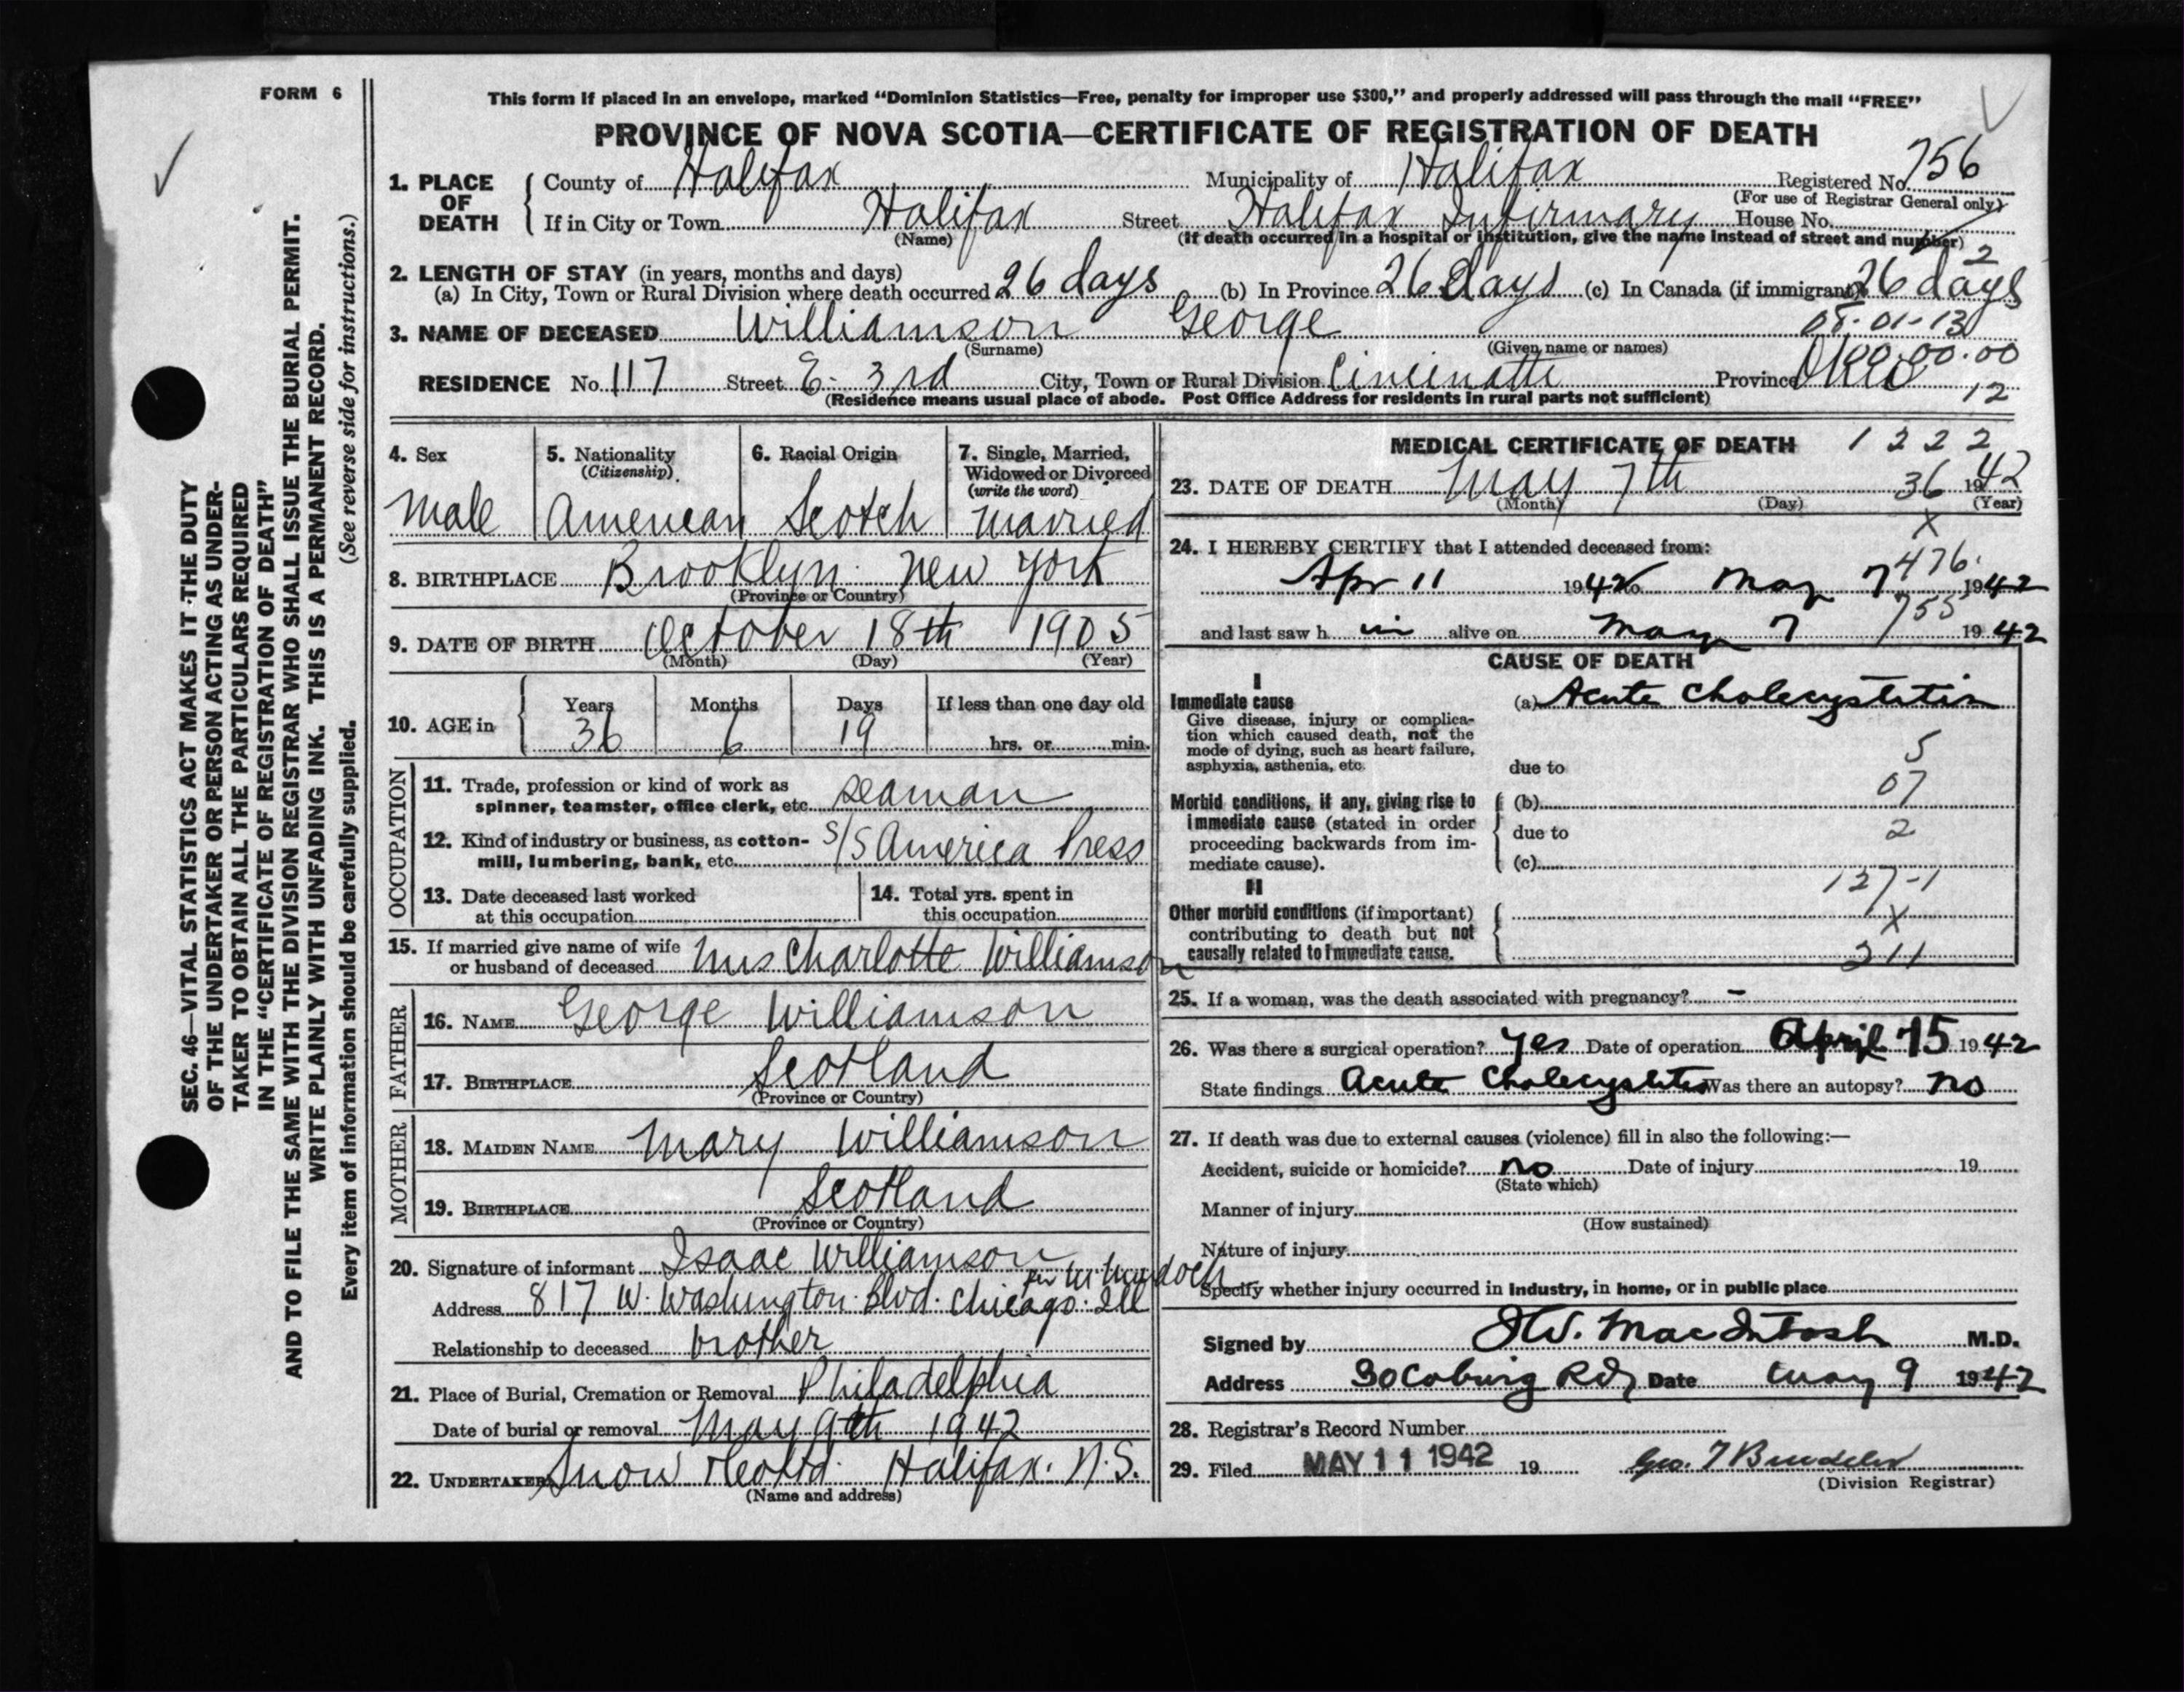 FORM 6
This form if placed in an envelope, marked “Dominion Statistics—Free, penalty for improper use $300,” and properly addressed will pass through the mail “FREE”
PROVINCE OF NOVA SCOTIA—CERTIFICATE OF REGISTRATION OF DEATH
SEC. 46—VITAL STATISTICS ACT MAKES IT THE DUTY
OF THE UNDERTAKER OR PERSON ACTING AS UNDER-
TAKER TO OBTAIN ALL THE PARTICULARS REQUIRED
IN THE “CERTIFICATE OF REGISTRATION OF DEATH”
AND TO FILE THE SAME WITH THE DIVISION REGISTRAR WHO SHALL ISSUE THE BURIAL PERMIT.
WRITE PLAINLY WITH UNFADING INK. THIS IS A PERMANENT RECORD.
Every item of information should be carefully supplied. (See reverse side for instructions.)
1. PLACE OF DEATH
County of Halifax Municipality of Halifax Registered No. 756
(For use of Registrar General only)
If in City or Town Halifax Street Halifax Infirmary House No.
(Name) (If death occurred in a hospital or institution, give the name instead of street and number)
2
2. LENGTH OF STAY (in years, months and days)
(a) In City, Town or Rural Division where death occurred 26 days (b) In Province 26 days (c) In Canada (if immigrant) 26 days
08-01-13
3. NAME OF DECEASED Williamson George
(Surname) (Given name or names)
00.00.00
RESIDENCE No. 117 Street E. 3rd City, Town or Rural Division Cincinatti Province Ohio
(Residence means usual place of abode. Post Office Address for residents in rural parts not sufficient)
12
4. Sex
Male
5. Nationality
(Citizenship)
American
6. Racial Origin
Scotch
7. Single, Married,
Widowed or Divorced
(write the word)
Married
8. BIRTHPLACE Brooklyn New York
(Province or Country)
9. DATE OF BIRTH October 18th 1905
(Month) (Day) (Year)
10. AGE in
Years Months Days If less than one day old
36 6 19 hrs. or min.
OCCUPATION
11. Trade, profession or kind of work as
spinner, teamster, office clerk, etc. seaman
12. Kind of industry or business, as cotton-
mill, lumbering, bank, etc. S/S America Press
13. Date deceased last worked
at this occupation
14. Total yrs. spent in
this occupation
15. If married give name of wife
or husband of deceased Mrs Charlotte Williamson
FATHER
16. NAME George Williamson
17. BIRTHPLACE Scotland
(Province or Country)
MOTHER
18. MAIDEN NAME Mary Williamson
19. BIRTHPLACE Scotland
(Province or Country)
20. Signature of informant Isaac Williamson
Address 817 W. Washington Blvd. Chicago. Ill
Relationship to deceased brother
21. Place of Burial, Cremation or Removal Philadelphia
Date of burial or removal May 9th 1942
22. UNDERTAKER Snow & Co Ltd. Halifax. N.S.
(Name and address)
MEDICAL CERTIFICATE OF DEATH
1 2 2 2
23. DATE OF DEATH May 7th 36 1942
(Month) (Day) (Year)
X
24. I HEREBY CERTIFY that I attended deceased from:
476
Apr 11 1942 to May 7 1942
755
and last saw h im alive on May 7 1942
CAUSE OF DEATH
I
Immediate cause
Give disease, injury or complica-
tion which caused death, not the
mode of dying, such as heart failure,
asphyxia, asthenia, etc.
(a) Acute Cholecystitis
5
due to
07
Morbid conditions, if any, giving rise to
immediate cause (stated in order
proceeding backwards from im-
mediate cause).
(b)
due to 2
(c)
127-1
II
Other morbid conditions (if important)
contributing to death but not
causally related to immediate cause.
X
211
25. If a woman, was the death associated with pregnancy? –
26. Was there a surgical operation? Yes Date of operation April 15 1942
State findings Acute Cholecystitis Was there an autopsy? no
27. If death was due to external causes (violence) fill in also the following:—
Accident, suicide or homicide? no Date of injury 19
(State which)
Manner of injury
(How sustained)
Nature of injury
Specify whether injury occurred in industry, in home, or in public place
Signed by J W. MacIntosh M.D.
Address 30 Coburg Rd, Date May 9 1942
28. Registrar’s Record Number
29. Filed MAY 11 1942 19
(Division Registrar)